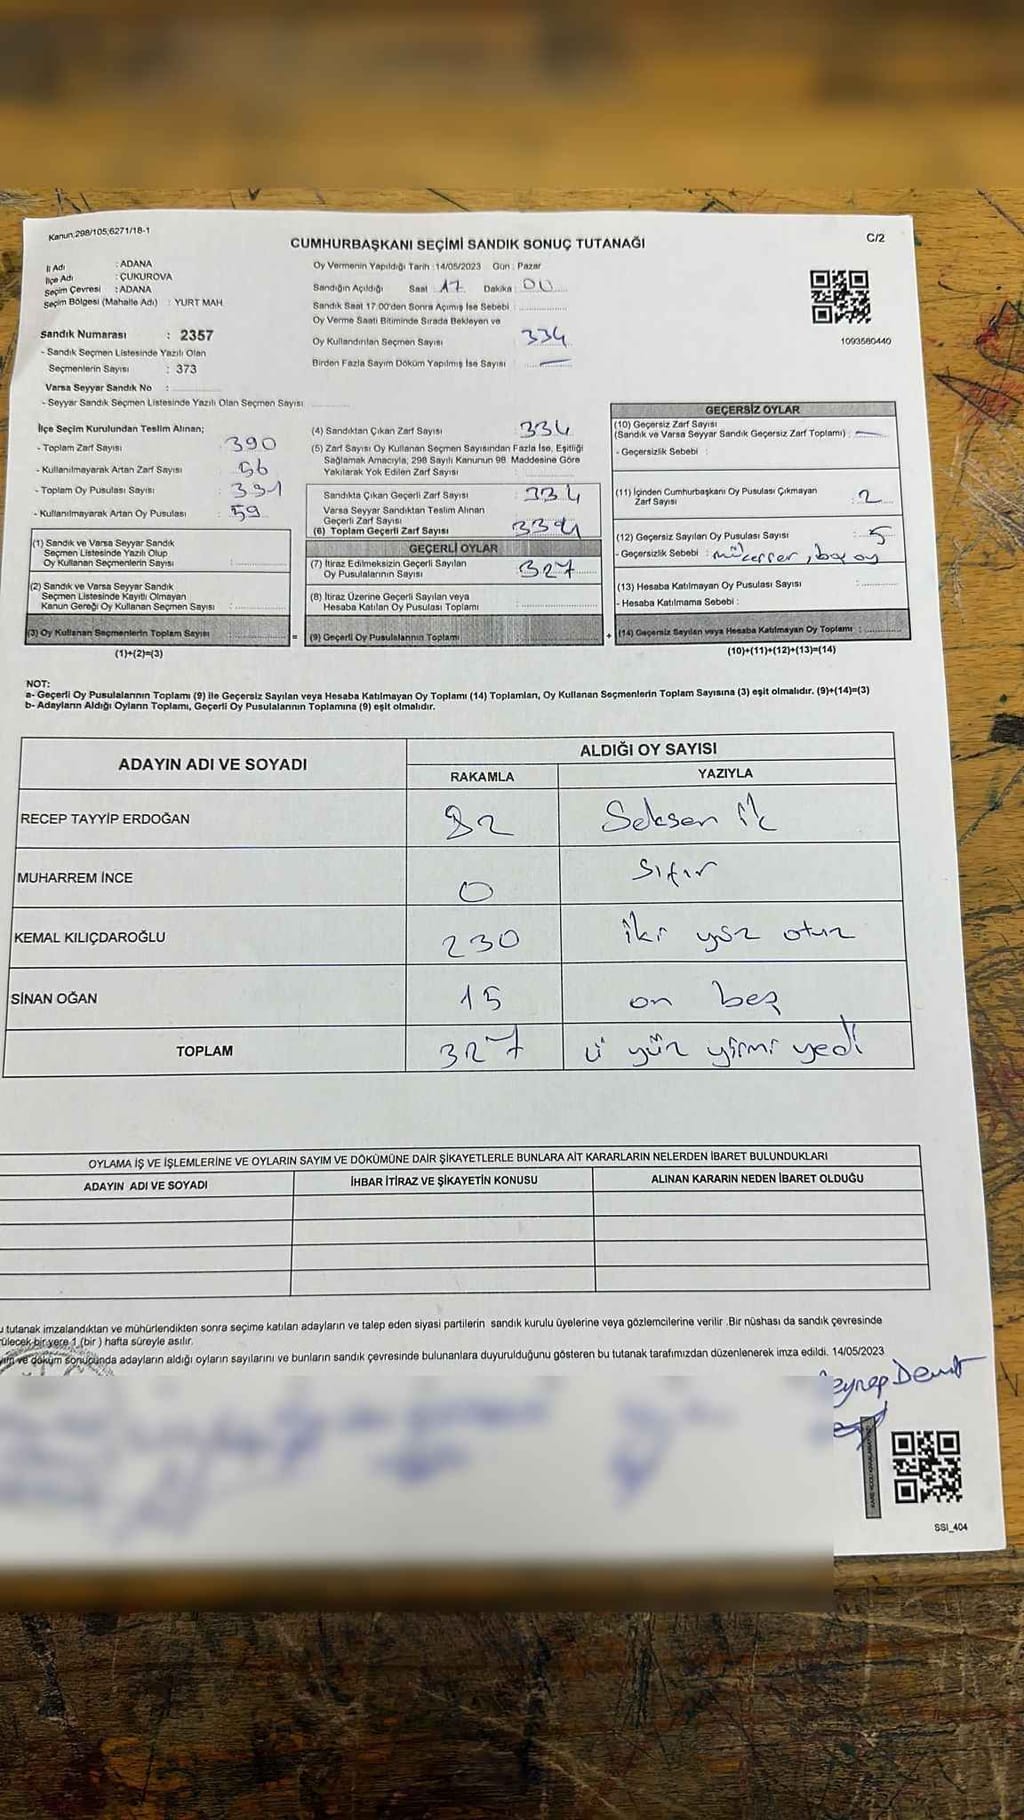 Kanun,298/105;6271/18-1
CUMHURBAŞKANI SEÇİMİ SANDIK SONUÇ TUTANAĞI
C/2
İl Adı : ADANA
İlçe Adı : ÇUKUROVA
Seçim Çevresi : ADANA
Seçim Bölgesi (Mahalle Adı) : YURT MAH.
Sandık Numarası : 2357
- Sandık Seçmen Listesinde Yazılı Olan
Seçmenlerin Sayısı : 373
Varsa Seyyar Sandık No :
- Seyyar Sandık Seçmen Listesinde Yazılı Olan Seçmen Sayısı
Oy Vermenin Yapıldığı Tarih :14/05/2023 Gün : Pazar
Sandığın Açıldığı Saat 17 Dakika : 00
Sandık Saat 17.00'den Sonra Açımış İse Sebebi :
Oy Verme Saati Bitiminde Sırada Bekleyen ve
Oy Kullandırılan Seçmen Sayısı 334
Birden Fazla Sayım Döküm Yapılmış İse Sayısı —
1093560440
İlçe Seçim Kurulundan Teslim Alınan;
- Toplam Zarf Sayısı : 390
- Kullanılmayarak Artan Zarf Sayısı : 56
- Toplam Oy Pusulası Sayısı : 391
- Kullanılmayarak Artan Oy Pusulası : 59
(1) Sandık ve Varsa Seyyar Sandık
Seçmen Listesinde Yazılı Olup
Oy Kullanan Seçmenlerin Sayısı :
(2) Sandık ve Varsa Seyyar Sandık
Seçmen Listesinde Kayıtlı Olmayan
Kanun Gereği Oy Kullanan Seçmen Sayısı :
(3) Oy Kullanan Seçmenlerin Toplam Sayısı
(1)+(2)=(3)
(4) Sandıktan Çıkan Zarf Sayısı : 334
(5) Zarf Sayısı Oy Kullanan Seçmen Sayısından Fazla İse, Eşitliği
Sağlamak Amacıyla, 298 Sayılı Kanunun 98. Maddesine Göre
Yakılarak Yok Edilen Zarf Sayısı
Sandıkta Çıkan Geçerli Zarf Sayısı : 334
Varsa Seyyar Sandıktan Teslim Alınan
Geçerli Zarf Sayısı
(6) Toplam Geçerli Zarf Sayısı 334
GEÇERLİ OYLAR
(7) İtiraz Edilmeksizin Geçerli Sayılan
Oy Pusulalarının Sayısı : 327
(8) İtiraz Üzerine Geçerli Sayılan veya
Hesaba Katılan Oy Pusulası Toplamı
= (9) Geçerli Oy Pusulalarının Toplamı
GEÇERSİZ OYLAR
(10) Geçersiz Zarf Sayısı
(Sandık ve Varsa Seyyar Sandık Geçersiz Zarf Toplamı) : —
- Geçersizlik Sebebi :
(11) İçinden Cumhurbaşkanı Oy Pusulası Çıkmayan
Zarf Sayısı : 2
(12) Geçersiz Sayılan Oy Pusulası Sayısı : 5
- Geçersizlik Sebebi : boş oy
(13) Hesaba Katılmayan Oy Pusulası Sayısı :
- Hesaba Katılmama Sebebi :
+ (14) Geçersiz Sayılan veya Hesaba Katılmayan Oy Toplamı :
(10)+(11)+(12)+(13)=(14)
NOT:
a- Geçerli Oy Pusulalarının Toplamı (9) ile Geçersiz Sayılan veya Hesaba Katılmayan Oy Toplamı (14) Toplamları, Oy Kullanan Seçmenlerin Toplam Sayısına (3) eşit olmalıdır. (9)+(14)=(3)
b- Adayların Aldığı Oyların Toplamı, Geçerli Oy Pusulalarının Toplamına (9) eşit olmalıdır.
ADAYIN ADI VE SOYADI ALDIĞI OY SAYISI
RAKAMLA YAZIYLA
RECEP TAYYİP ERDOĞAN 82 Seksen ik
MUHARREM İNCE 0 Sıfır
KEMAL KILIÇDAROĞLU 230 iki yüz otuz
SİNAN OĞAN 15 on beş
TOPLAM 327 ü yüz yirmi yedi
OYLAMA İŞ VE İŞLEMLERİNE VE OYLARIN SAYIM VE DÖKÜMÜNE DAİR ŞİKAYETLERLE BUNLARA AİT KARARLARIN NELERDEN İBARET BULUNDUKLARI
ADAYIN ADI VE SOYADI İHBAR İTİRAZ VE ŞİKAYETİN KONUSU ALINAN KARARIN NEDEN İBARET OLDUĞU
u tutanak imzalandıktan ve mühürlendikten sonra seçime katılan adayların ve talep eden siyasi partilerin sandık kurulu üyelerine veya gözlemcilerine verilir .Bir nüshası da sandık çevresinde
rülecek bir yere 1 (bir ) hafta süreyle asılır.
yım ve döküm sonucunda adayların aldığı oyların sayılarını ve bunların sandık çevresinde bulunanlara duyurulduğunu gösteren bu tutanak tarafımızdan düzenlenerek imza edildi. 14/05/2023
SSI_404